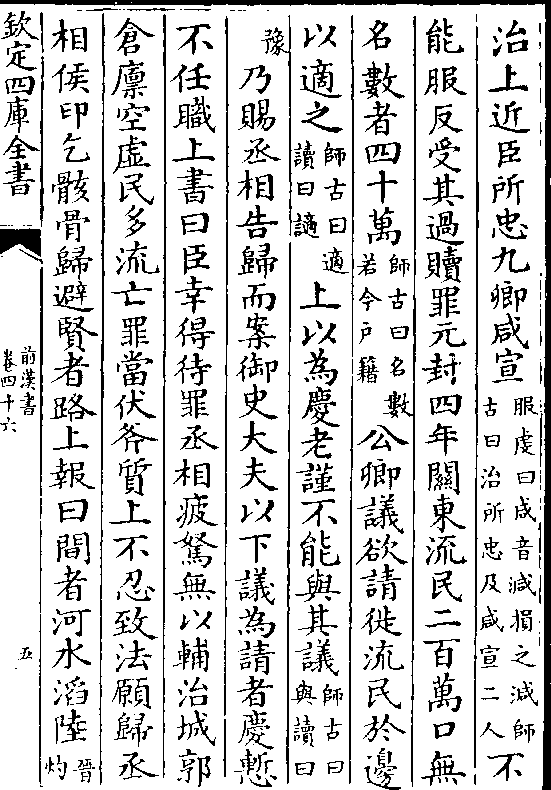 治上近臣所忠九卿咸宣服虔曰咸音減損之減師古曰治所忠及咸宣二人不
能服反受其過贖罪元封四年關東流民二百萬口無
名數者四十萬師古曰名數若今戶籍公卿議欲請徙流民於邊
以適之師古曰適讀曰謫上以為慶老謹不能與其議師古曰與讀曰
豫乃賜丞相告歸而案御史大夫以下議為請者慶慙
不任職上書曰臣幸得待罪丞相疲駑無以輔治城郭
倉廪空虛民多流亡罪當伏斧質上不忍致法願歸丞
相侯印乞骸骨歸避賢者路上報曰間者河水滔陸晉灼
欽定四庫全書
前漢書
卷四十六
五